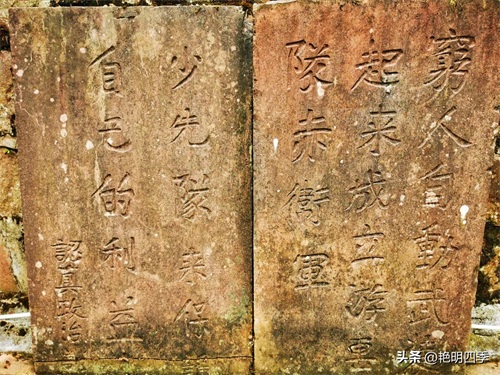 窮人自動武
起来成立游
隊赤衛軍
少先隊来保
自己的利益
認真政治
头条 @艳明四季